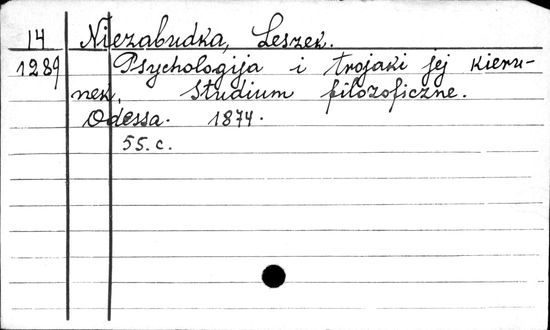 14 Niezabudka, Leszek.
1289 Psychologija i trojaki jej kieru-
nek. Studium filozoficzne.
Odessa. 1874.
55. c.